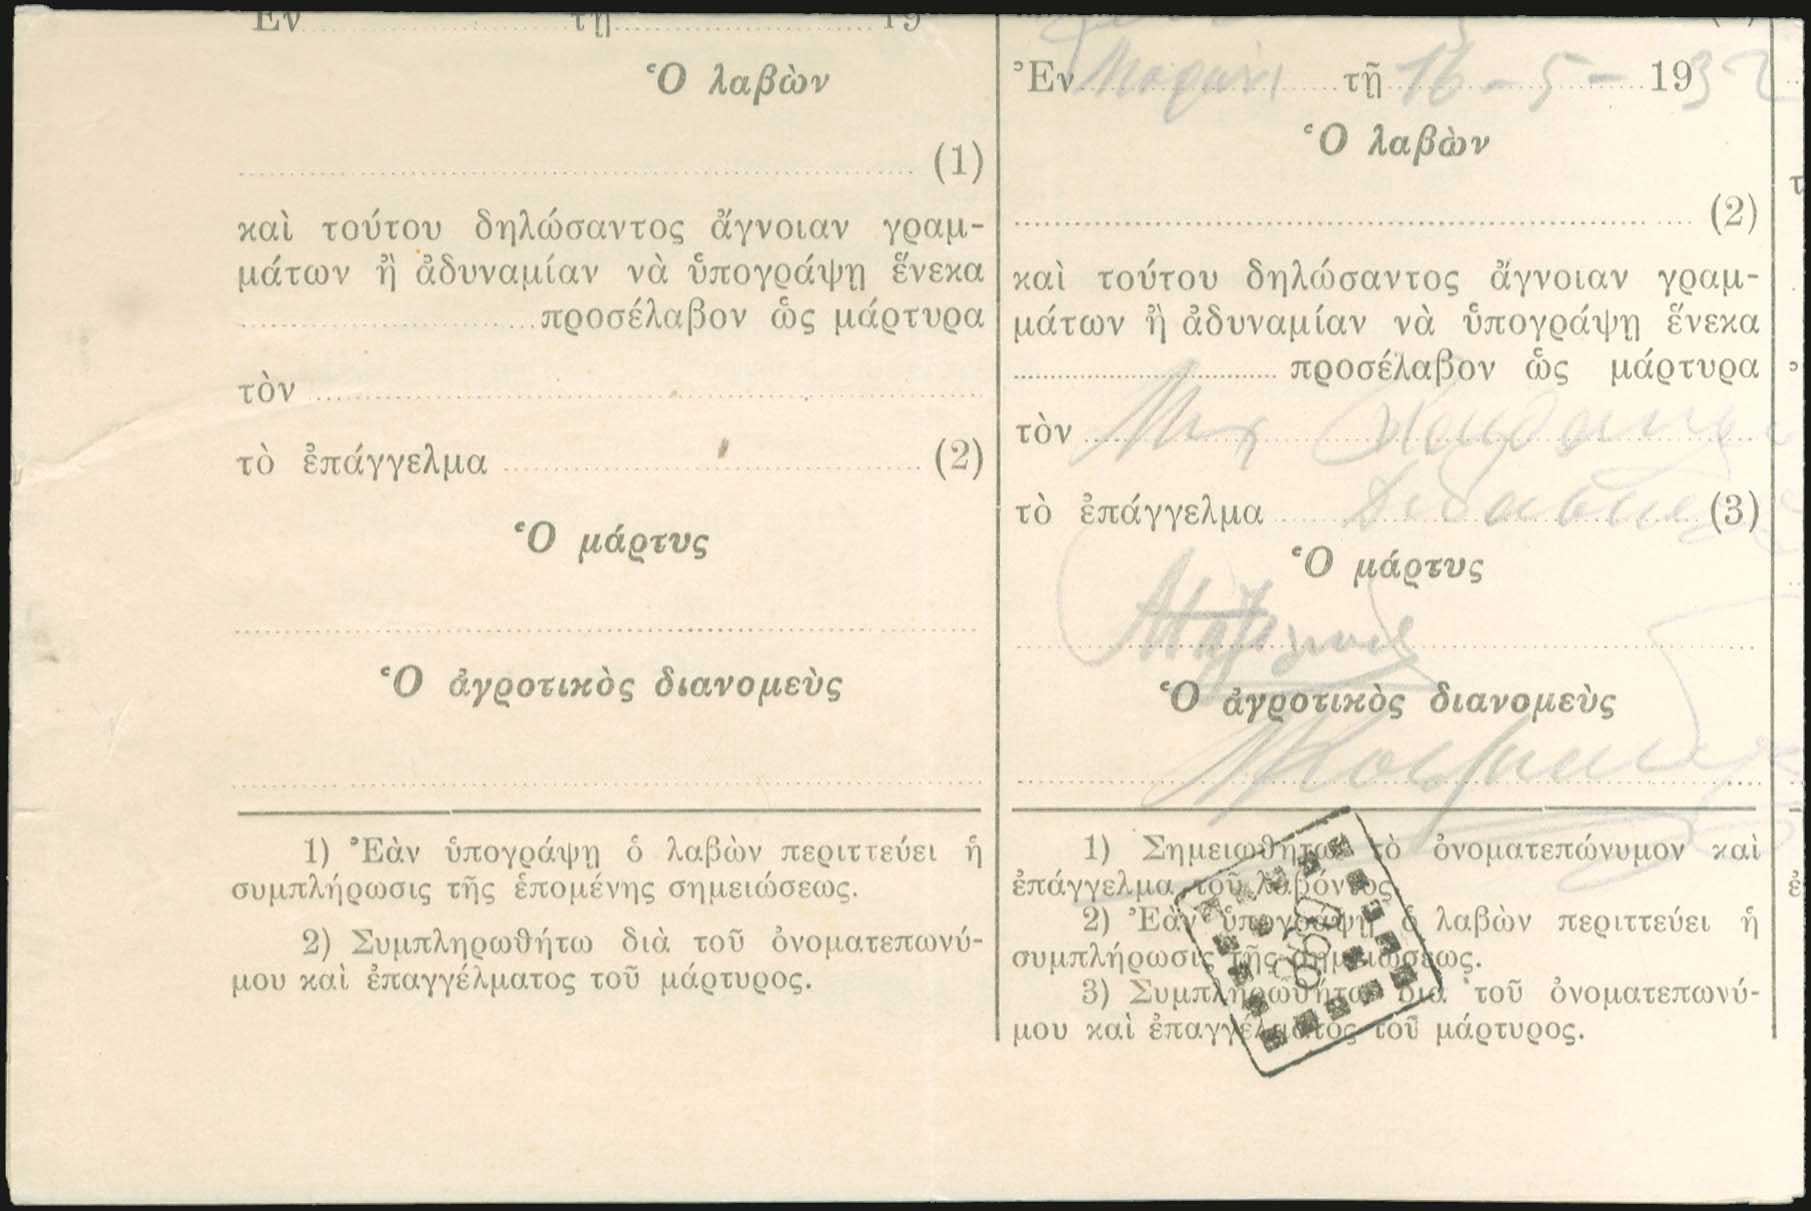 Ἐν τῇ 19
Ὁ λαβὼν
(1)
καὶ τούτου δηλώσαντος ἄγνοιαν γραμ-
μάτων ἢ ἀδυναμίαν νὰ ὑπογράψῃ ἕνεκα
προσέλαβον ὡς μάρτυρα
τὸν
τὸ ἐπάγγελμα (2)
Ὁ μάρτυς
Ὁ ἀγροτικὸς διανομεὺς
1) Ἐὰν ὑπογράψῃ ὁ λαβὼν περιττεύει ἡ
συμπλήρωσις τῆς ἑπομένης σημειώσεως.
2) Συμπληρωθήτω διὰ τοῦ ὀνοματεπωνύ-
μου καὶ ἐπαγγέλματος τοῦ μάρτυρος.
Ἐν τῇ 16-5-1932
Ὁ λαβὼν
(2)
καὶ τούτου δηλώσαντος ἄγνοιαν γραμ-
μάτων ἢ ἀδυναμίαν νὰ ὑπογράψῃ ἕνεκα
προσέλαβον ὡς μάρτυρα
τὸν Μιχ
τὸ ἐπάγγελμα (3)
Ὁ μάρτυς
Ὁ ἀγροτικὸς διανομεὺς
1) Σημειωθήτω τὸ ὀνοματεπώνυμον καὶ
ἐπάγγελμα τοῦ λαβόντος.
2) Ἐὰν ὑπογράψῃ ὁ λαβὼν περιττεύει ἡ
συμπλήρωσις τῆς σημειώσεως.
3) Συμπληρωθήτω διὰ τοῦ ὀνοματεπωνύ-
μου καὶ ἐπαγγέλματος τοῦ μάρτυρος.